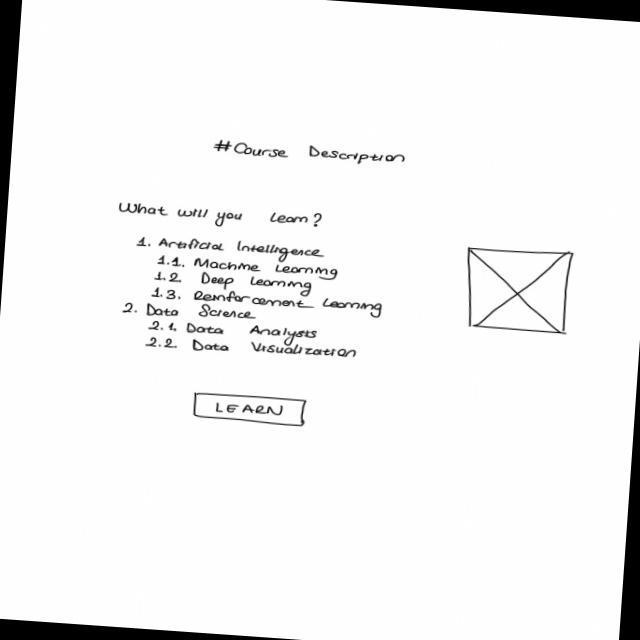 #Course Description
What will you learn?
1. Artificial Intelligence
1.1. Machine Learning
1.2 Deep Learning
1.3. Reinforcement Learning
2. Data Science
2.1. Data Analysis
2.2. Data Visualization
LEARN